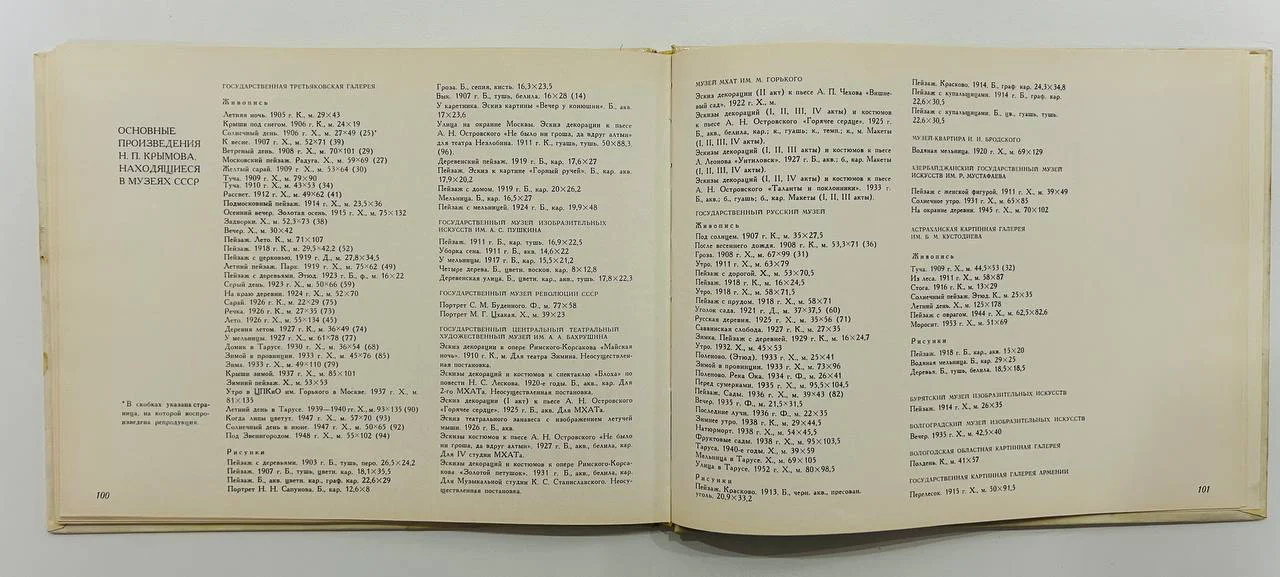 ОСНОВНЫЕ
ПРОИЗВЕДЕНИЯ
Н. П. КРЫМОВА,
НАХОДЯЩИЕСЯ
В МУЗЕЯХ СССР
* В скобках указана стра-
ница, на которой воспро-
изведена репродукция.
100
ГОСУДАРСТВЕННАЯ ТРЕТЬЯКОВСКАЯ ГАЛЕРЕЯ
Живопись
Летняя ночь. 1905 г. К., м. 29×43
Крыши под снегом. 1906 г. К., м. 24×19
Солнечный день. 1906 г. Х., м. 27×49 (25)*
К весне. 1907 г. Х., м. 52×71 (39)
Ветреный день. 1908 г. Х., м. 70×101 (29)
Московский пейзаж. Радуга. Х., м. 59×69 (27)
Желтый сарай. 1909 г. Х., м. 53×64 (30)
Туча. 1909 г. Х., м. 79×90
Туча. 1910 г. Х., м. 43×53 (34)
Рассвет. 1912 г. Х., м. 49×62 (41)
Подмосковный пейзаж. 1914 г. Х., м. 23,5×36
Осенний вечер. Золотая осень. 1915 г. Х., м. 75×132
Задворки. Х., м. 52,3×73 (38)
Вечер. Х., м. 30×42
Пейзаж. Лето. К., м. 71×107
Пейзаж. 1918 г. К., м. 29,5×42,2 (52)
Пейзаж с церковью, 1919 г. Д., м. 27,8×34,5
Летний пейзаж. Парк. 1919 г. Х., м. 75×62 (49)
Пейзаж с деревьями. Этюд. 1923 г. Б., ф., м. 16×22
Серый день. 1923 г. Х., м. 50×66 (59)
На краю деревни. 1924 г. Х., м. 52×70
Сарай. 1926 г. К., м. 22×29 (75)
Речка. 1926 г. К., м. 27×35 (73)
Лето. 1926 г. Х., м. 55×134 (45)
Деревня летом. 1927 г. К., м. 36×49 (74)
У мельницы. 1927 г. Х., м. 61×78 (77)
Домик в Тарусе. 1930 г. Х., м. 36×54 (68)
Зимой в провинции. 1933 г. Х., м. 45×76 (85)
Зима. 1933 г. Х., м. 49×110 (79)
Крыши зимой. 1937 г. Х., м. 85×101
Зимний пейзаж. Х., м. 53×53
Утро в ЦПКиО им. Горького в Москве. 1937 г. Х., м.
81×135
Летний день в Тарусе. 1939—1940 гг. Х., м. 93×135 (90)
Когда липы цветут. 1947 г. Х., м. 57×70 (93)
Солнечный день в июне. 1947 г. Х., м. 50×65 (92)
Под Звенигородом. 1948 г. Х., м. 55×102 (94)
Рисунки
Пейзаж с деревьями. 1903 г. Б., тушь, перо. 26,5×24,2
Пейзаж. 1907 г. Б., тушь, цвети. кар. 18,1×35,5
Пейзаж. Б., акв. цвети. кар., граф. кар. 22,6×29
Портрет Н. Н. Сапунова. Б., кар. 12,6×8
Гроза. Б., сепия, кисть. 16,3×23,5
Бык. 1907 г. Б., тушь, белила. 16×28 (14)
У каретника. Эскиз картины «Вечер у конюшни». Б., акв.
17×23,6
Улица на окраине Москвы. Эскиз декорации к пьесе
А. Н. Островского «Не было ни гроша, да вдруг алтын»
для театра Незлобина. 1911 г. К., гуашь, тушь. 50×88,3
(96).
Деревенский пейзаж. 1919 г. Б., кар. 17,6×27
Пейзаж. Эскиз к картине «Горный ручей». Б., кар. акв.
17,9×20,2
Пейзаж с домом. 1919 г. Б., кар. 20×26,2
Мельница. Б., кар. 16,5×27
Пейзаж с мельницей. 1924 г. Б., кар. 19,9×48
ГОСУДАРСТВЕННЫЙ МУЗЕЙ ИЗОБРАЗИТЕЛЬНЫХ
ИСКУССТВ ИМ. А. С. ПУШКИНА
Пейзаж. 1911 г. Б., кар. тушь. 16,9×22,5
Уборка сена. 1911 г. Б., акв. 14,6×22
У мельницы. 1917 г. Б., кар. 15,5×21,2
Четыре дерева. Б., цвети. восков. кар. 8×12,8
Деревенская улица. Б., цвети. кар., акв., тушь. 17,8×22,3
ГОСУДАРСТВЕННЫЙ МУЗЕЙ РЕВОЛЮЦИИ СССР
Портрет С. М. Буденного. Ф., м. 77×58
Портрет М. Г. Цхакая. Х., м. 39×23
ГОСУДАРСТВЕННЫЙ ЦЕНТРАЛЬНЫЙ ТЕАТРАЛЬНЫЙ
ХУДОЖЕСТВЕННЫЙ МУЗЕЙ ИМ. А. А. БАХРУШИНА
Эскиз декорации к опере Римского-Корсакова «Майская
ночь». 1910 г. К., м. Для театра Зимина. Неосуществлен-
ная постановка.
Эскиз декораций и костюмов к спектаклю «Блоха» по
повести Н. С. Лескова. 1920-е годы. Б., акв., кар. Для
2-го МХАТа. Неосуществленная постановка.
Эскиз декорации (I акт) к пьесе А. Н. Островского
«Горячее сердце». 1925 г. Б., акв. Для МХАТа.
Эскиз театрального занавеса с изображением летучей
мыши. 1926 г. Б., акв.
Эскизы костюмов к пьесе А. Н. Островского «Не было
ни гроша, да вдруг алтын». 1927 г. Б., акв., белила, кар.
Для IV студии МХАТа.
Эскизы декораций и костюмов к опере Римского-Корса-
кова «Золотой петушок». 1931 г. Б., акв., белила, кар.
Для Музыкальной студии К. С. Станиславского. Неосу-
ществленная постановка.
МУЗЕЙ МХАТ ИМ. М. ГОРЬКОГО
Эскиз декорации (II акт) к пьесе А. П. Чехова «Вишне-
вый сад». 1922 г. Х., м.
Эскизы декораций (I, II, III, IV акты) и костюмов
к пьесе А. Н. Островского «Горячее сердце». 1925 г.
Б., акв., белила, кар.; к., гуашь; к., темп.; к., м. Макеты
(I, II, III, IV акты).
Эскизы декораций (I, II, III акты) и костюмов к пьесе
Л. Леонова «Унтиловск». 1927 г. Б., акв.; б., кар. Макеты
(I, II, III, IV акты).
Эскизы декораций (I, II, III, IV акты) и костюмов к пьесе
А. Н. Островского «Таланты и поклонники». 1933 г.
Б., акв.; б., гуашь; б., кар. Макеты (I, II, III акты).
ГОСУДАРСТВЕННЫЙ РУССКИЙ МУЗЕЙ
Живопись
Под солнцем. 1907 г. К., м. 35×27,5
После весеннего дождя. 1908 г. К., м. 53,3×71 (36)
Гроза. 1908 г. Х., м. 67×99 (31)
Утро. 1911 г. Х., м. 63×79
Пейзаж с дорогой. Х., м. 53×70,5
Пейзаж. 1918 г. К., м. 16×24,5
Утро. 1918 г. Х., м. 58×71,5
Пейзаж с прудом. 1918 г. Х., м. 58×71
Уголок сада. 1921 г. Д., м. 37×37,5 (60)
Русская деревня. 1925 г. Х., м. 35×56 (71)
Саввинская слобода. 1927 г. К., м. 27×35
Зимка. Пейзаж с деревней. 1929 г. К., м. 16×24,7
Утро. 1932. Х., м. 45×53
Поленово. (Этюд). 1933 г. Х., м. 25×41
Зимой в провинции. 1933 г. Х., м. 73×96
Поленово. Река Ока. 1934 г. Ф., м. 26×41
Перед сумерками. 1935 г. Х., м. 95,5×104,5
Пейзаж. Сады. 1936 г. Х., м. 39×43 (82)
Вечер. 1935 г. Ф., м. 21,5×31,5
Последние лучи. 1936 г. Ф., м. 22×35
Зимнее утро. 1938 г. К., м. 29×44,5
Натюрморт. 1938 г. Х., м. 54×45,5
Фруктовые сады. 1938 г. Х., м. 95×103,5
Таруса. 1940-е годы. Х., м. 39×59
Мельница в Тарусе. Х., м. 69×105
Улица в Тарусе. 1952 г. Х., м. 80×98,5
Рисунки
Пейзаж. Красково. 1913. Б., черн. акв., прессован.
уголь. 20,9×33,2
Пейзаж. Красково. 1914. Б., граф. кар. 24,3×34,8
Пейзаж с купальщицами. 1914 г. Б., граф. кар.
22,6×30,5
Пейзаж с купальщицами. Б., цв., гуашь, тушь.
22,6×30,5
МУЗЕЙ-КВАРТИРА И. И. БРОДСКОГО
Водяная мельница. 1920 г. Х., м. 69×129
АЗЕРБАЙДЖАНСКИЙ ГОСУДАРСТВЕННЫЙ МУЗЕЙ
ИСКУССТВ ИМ. Р. МУСТАФАЕВА
Пейзаж с женской фигурой. 1911 г. Х., м. 39×49
Солнечное утро. 1931 г. Х., м. 65×85
На окраине деревни. 1945 г. Х., м. 70×102
АСТРАХАНСКАЯ КАРТИННАЯ ГАЛЕРЕЯ
ИМ. Б. М. КУСТОДИЕВА
Живопись
Туча. 1909 г. Х., м. 44,5×53 (32)
Из леса. 1911 г. Х., м. 58×87
Стога. 1916 г. К., м. 13×29
Солнечный пейзаж. Этюд. К., м. 25×35
Летний день. Х., м. 125×178
Пейзаж с оврагом. 1944 г. Х., м. 62,5×82,6
Моросит. 1953 г. Х., м. 51×69
Рисунки
Пейзаж. 1918 г. Б., кар., акв. 15×20
Водяная мельница. Б., кар. 29×25
Деревья. Б., тушь, белила. 18,5×18,5
БУРЯТСКИЙ МУЗЕЙ ИЗОБРАЗИТЕЛЬНЫХ ИСКУССТВ
Пейзаж. 1914 г. Х., м. 26×35
ВОЛГОГРАДСКИЙ МУЗЕЙ ИЗОБРАЗИТЕЛЬНЫХ ИСКУССТВ
Вечер. 1935 г. Х., м. 42,5×40
ВОЛОГОДСКАЯ ОБЛАСТНАЯ КАРТИННАЯ ГАЛЕРЕЯ
Полдень. К., м. 41×57
ГОСУДАРСТВЕННАЯ КАРТИННАЯ ГАЛЕРЕЯ АРМЕНИИ
Перелесок. 1915 г. Х., м. 50×91,5
101